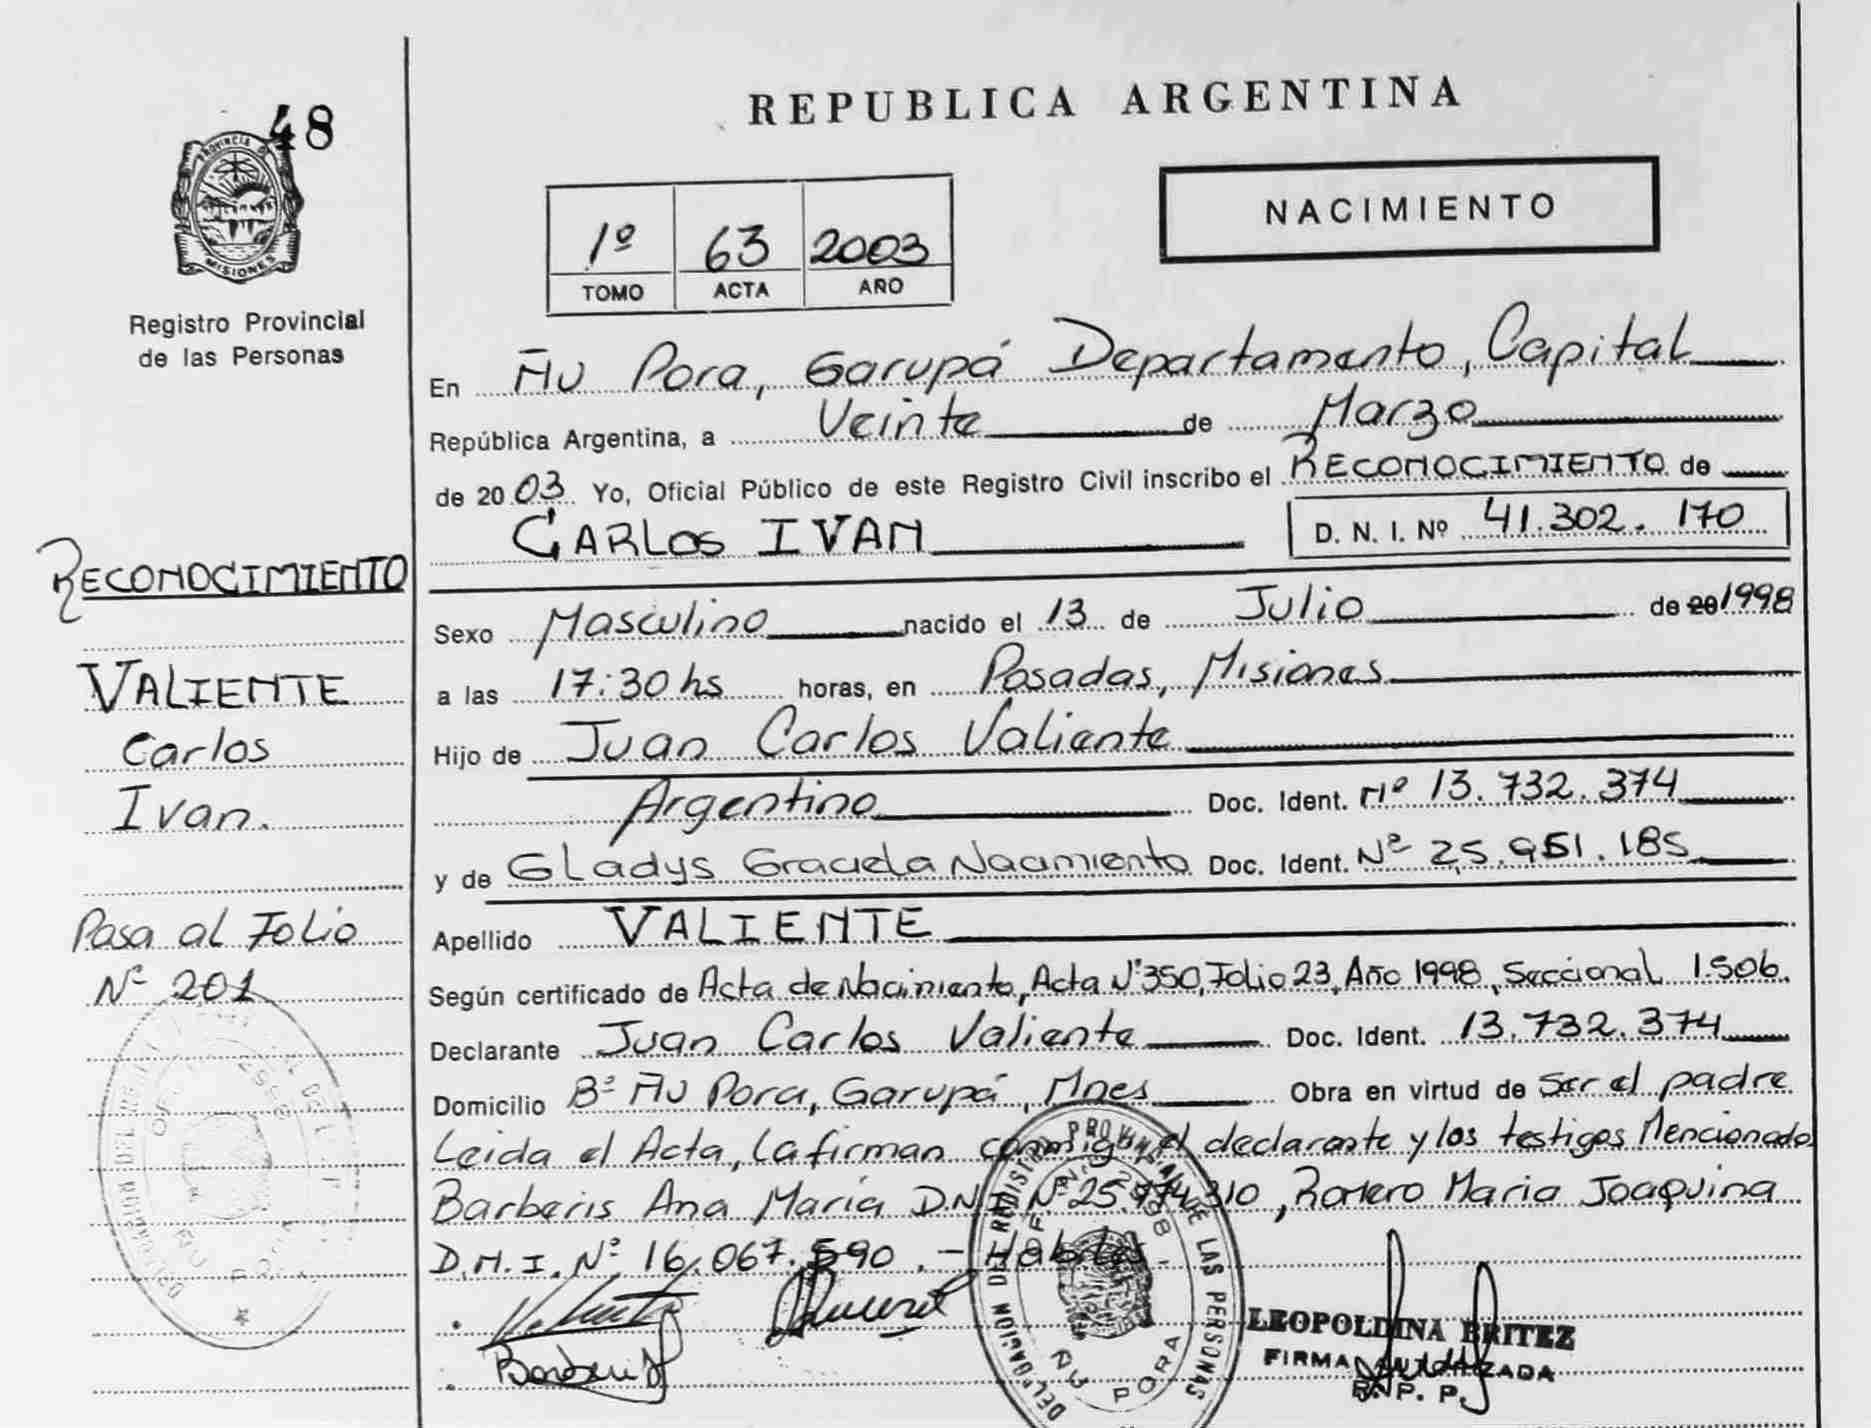 48
PROVINCIA DE
MISIONES
Registro Provincial
de las Personas
RECONOCIMIENTO
VALIENTE
Carlos
Ivan.
Pasa al Folio
Nº 201
REPUBLICA ARGENTINA
NACIMIENTO
1º 63 2003
TOMO ACTA AÑO
En Ñu Pora, Garupá Departamento, Capital
República Argentina, a Veinte de Marzo
de 2003 Yo, Oficial Público de este Registro Civil inscribo el RECONOCIMIENTO de
CARLOS IVAN D. N. I. Nº 41.302.170
Sexo Masculino nacido el 13 de Julio de 20 1998
a las 17:30 hs horas, en Posadas, Misiones
Hijo de Juan Carlos Valiente
Argentino Doc. Ident. Nº 13.732.374
y de Gladys Graciela Nacimiento Doc. Ident. Nº 25.951.185
Apellido VALIENTE
Según certificado de Acta de Nacimiento, Acta Nº 350, Folio 23, Año 1998, Seccional 1.506.
Declarante Juan Carlos Valiente Doc. Ident. 13.732.374
Domicilio Bº Ñu Pora, Garupá, Mnes Obra en virtud de ser el padre
Leida el Acta, la firman conmigo el declarante y los testigos Mencionados
Barberis Ana María D.N.I. Nº 25.974.310, Romero Maria Joaquina
D.N.I. Nº 16.067.590.- Habiles
DELEGACION DEL REGISTRO PROVINCIAL DE LAS PERSONAS
ÑU PORA
LEOPOLDINA BRITEZ
FIRMA AUTORIZADA
R. P. P.